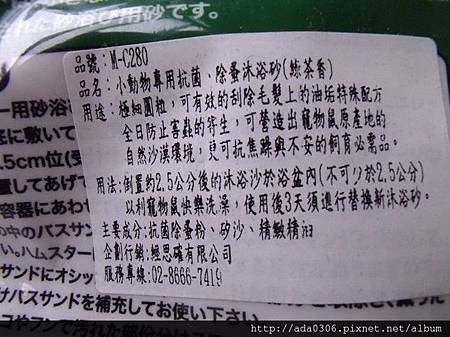 れた砂浴び用砂です。
品號：M-C280
品名：小動物專用抗菌、除蚤沐浴砂(綠茶香)
用途：極細圓粒，可有效的刮除毛髮上的油垢特殊配方
全日防止害蟲的寄生，可營造出寵物鼠原產地的
自然沙漠環境，更可抗焦躁與不安的飼育必需品。
用法：倒置約2.5公分後的沐浴沙於浴盆內(不可少於2.5公分)
以利寵物鼠快樂洗澡，使用後3天須進行替換新沐浴砂。
主要成分：抗菌除蚤粉、矽沙、精緻精油
企劃行銷：經思確有限公司
服務專線：02-8666-7419
ー用砂浴
に敷いて
.5cm位(受
置してあげて
容器にあわせ
の中のバスサン
ハムスター
サンドにオシッ
けバスサンドを補充してお使い下さい。
コやフンで汚れた部份
http://ada0306.pixnet.net/album